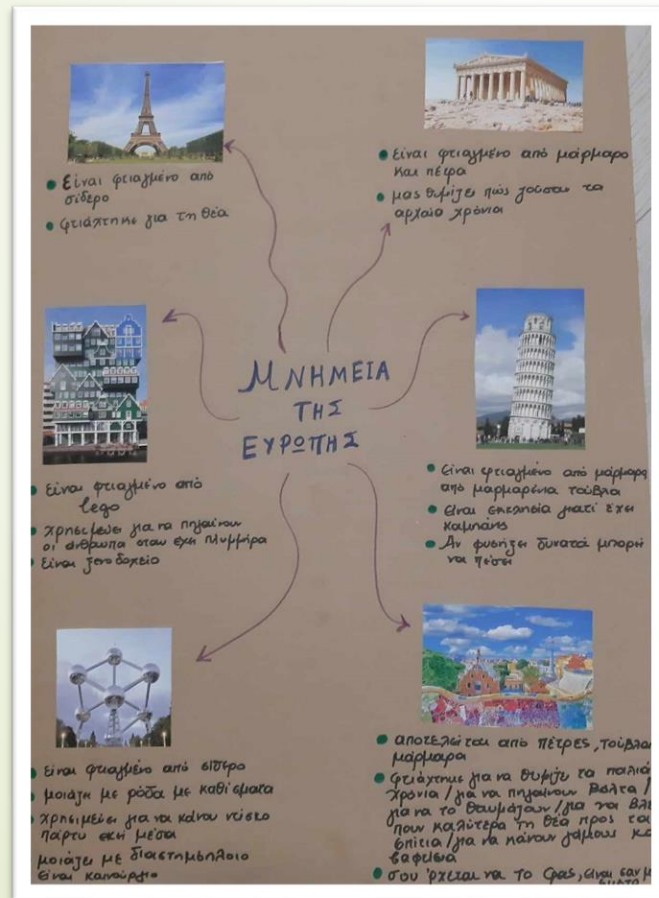 ΜΝΗΜΕΙΑ
ΤΗΣ
ΕΥΡΩΠΗΣ
είναι φτιαγμένο από
σίδερο
φτιάχτηκε για τη θέα
είναι φτιαγμένο από μάρμαρο
και πέτρα
μας θυμίζει πώς ζούσαν τα
αρχαία χρόνια
είναι φτιαγμένο από
lego
χρησιμεύει για να πηγαίνουν
οι άνθρωποι όταν έχει πλημμύρα
είναι ξενοδοχείο
είναι φτιαγμένο από μάρμαρο
από μαρμαρένια τούβλα
είναι εκκλησία γιατί έχει
καμπάνες
Αν φυσήξει δυνατά μπορεί
να πέσει
είναι φτιαγμένο από σίδερο
μοιάζει με ρόδα με καθίσματα
χρησιμεύει για να κάνουν ντίσκο
πάρτυ εκεί μέσα
μοιάζει με διαστημόπλοιο
είναι καινούργιο
αποτελείται από πέτρες, τούβλα
μάρμαρα
φτιάχτηκε για να θυμίζει τα παλιά
χρόνια / για να πηγαίνουν βόλτα /
για να το θαυμάζουν / για να βλέ
πουν καλύτερα τη θέα προς τα
σπίτια / για να κάνουν γάμους κα
βαφτίσια
σου 'ρχεται να το φας, είναι σαν